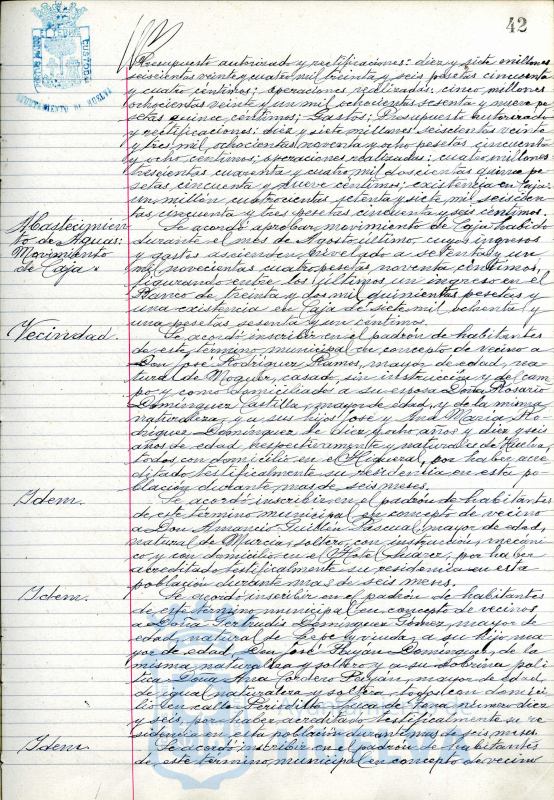 42
AYUNTAMIENTO DE HUELVA
Presupuesto autorizado y rectificaciones: diez y siete millones
seiscientos veinte y cuatro mil treinta y seis pesetas cincuenta
y cuatro céntimos; operaciones realizadas: cinco millones
ochocientos veinte y un mil ochocientos sesenta y nueve pe-
setas quince céntimos; Gastos; Presupuesto autorizado
y rectificaciones: diez y siete millones seiscientos veinte
y tres mil, ochocientos noventa y ocho pesetas cincuenta
y ocho céntimos; operaciones realizadas: cuatro millones
trescientos cuarenta y cuatro mil doscientas quince pe-
setas cincuenta y nueve céntimos; existencia en Caja:
un millón cuatrocientos setenta y siete mil seiscien-
tas cincuenta y tres pesetas cincuenta y seis céntimos.
Abastecimien-
to de Aguas:
Movimiento
de Caja
Se acordó aprobar movimiento de Caja habido
durante el mes de Agosto último, cuyos ingresos
y gastos ascienden, nivelado a setenta y un
mil novecientas cuatro pesetas noventa céntimos,
figurando entre los últimos un ingreso en el
Banco de treinta y dos mil quinientas pesetas y
una existencia en Caja de siete mil ochenta y
una pesetas sesenta y un céntimos.
Vecindad.
Se acordó inscribir en el padrón de habitantes
de este término municipal en concepto de vecino a
Don José Rodríguez Ramos, mayor de edad, na-
tural de Moguer, casado, sin instrucción y del cam-
po y como domiciliados a su esposa Doña Rosario
Domínguez Castilla, mayor de edad, y de la misma
naturaleza, y a sus hijos José y Ana María Ro-
dríguez Domínguez de diez y ocho años y diez y seis
años de edad, respectivamente y naturales de Huelva,
todos con domicilio en el Higueral, por haber acre-
ditado testificalmente su residencia en esta po-
blación durante mas de seis meses.
Idem.
Se acordó inscribir en el padrón de habitantes
de este término municipal en concepto de vecino
a Don Amancio Guillén Pascual, mayor de edad,
natural de Murcia, soltero, con instrucción, mecáni-
co y con domicilio en el Suárez, por haber
acreditado testificalmente su residencia en esta
población durante mas de seis meses.
Idem.
Se acordó inscribir en el padrón de habitantes
de este término municipal en concepto de vecinos
a Doña Gertrudis Domínguez Gómez, mayor de
edad, natural de Lepe y viuda, a su hijo ma-
yor de edad, Don José Payán Domínguez, de la
misma naturaleza y soltero y a su sobrina polí-
tica Doña Ana Cordero Payán, mayor de edad,
de igual naturaleza y soltera, todos con domici-
lio en calle Luca de Tena número diez
y seis, por haber acreditado testificalmente su re-
sidencia en esta población durante mas de seis meses.
Idem.
Se acordó inscribir en el padrón de habitantes
de este término municipal en concepto de vecino